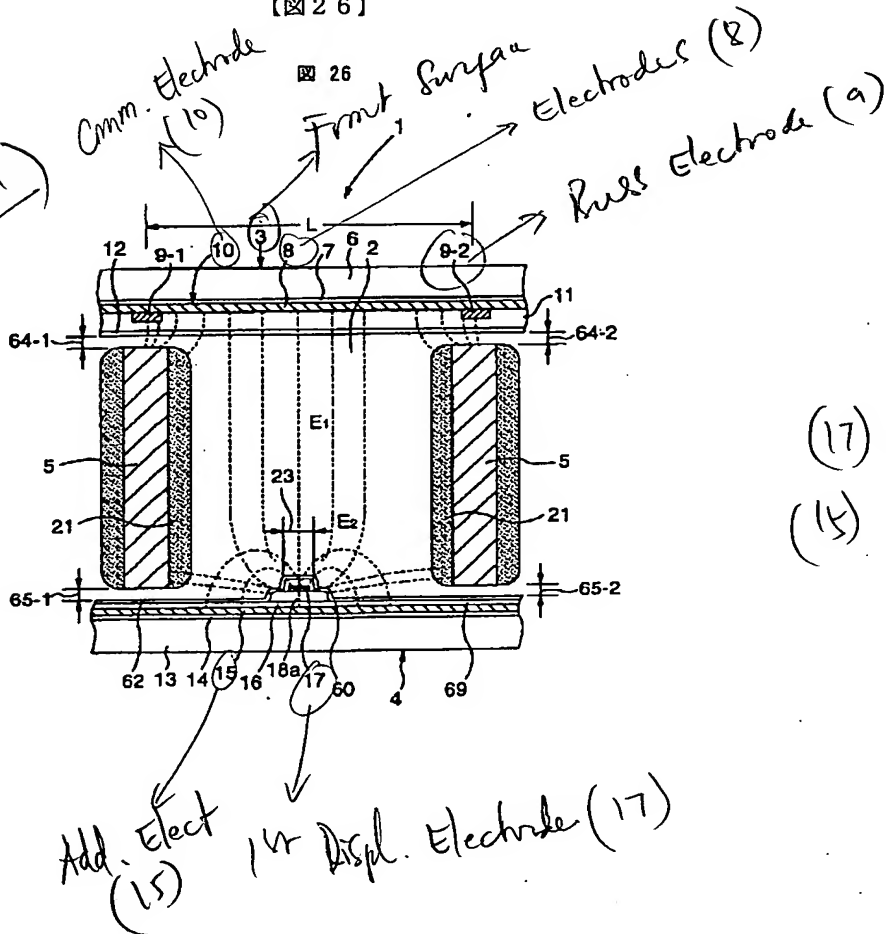 【図26】
図 26
Comm. Electrode
(10)
Front Surface
Electrodes (8)
Buss Electrode (9)
1
L
12
9-1
10
3
8
7
6
2
9-2
11
64-1
64-2
E₁
5
5
23
E₂
21
21
(17)
(15)
65-1
65-2
62
13
14
15
16
18a
17
60
4
69
Add. Elect
(15)
1st Displ. Electrode (17)